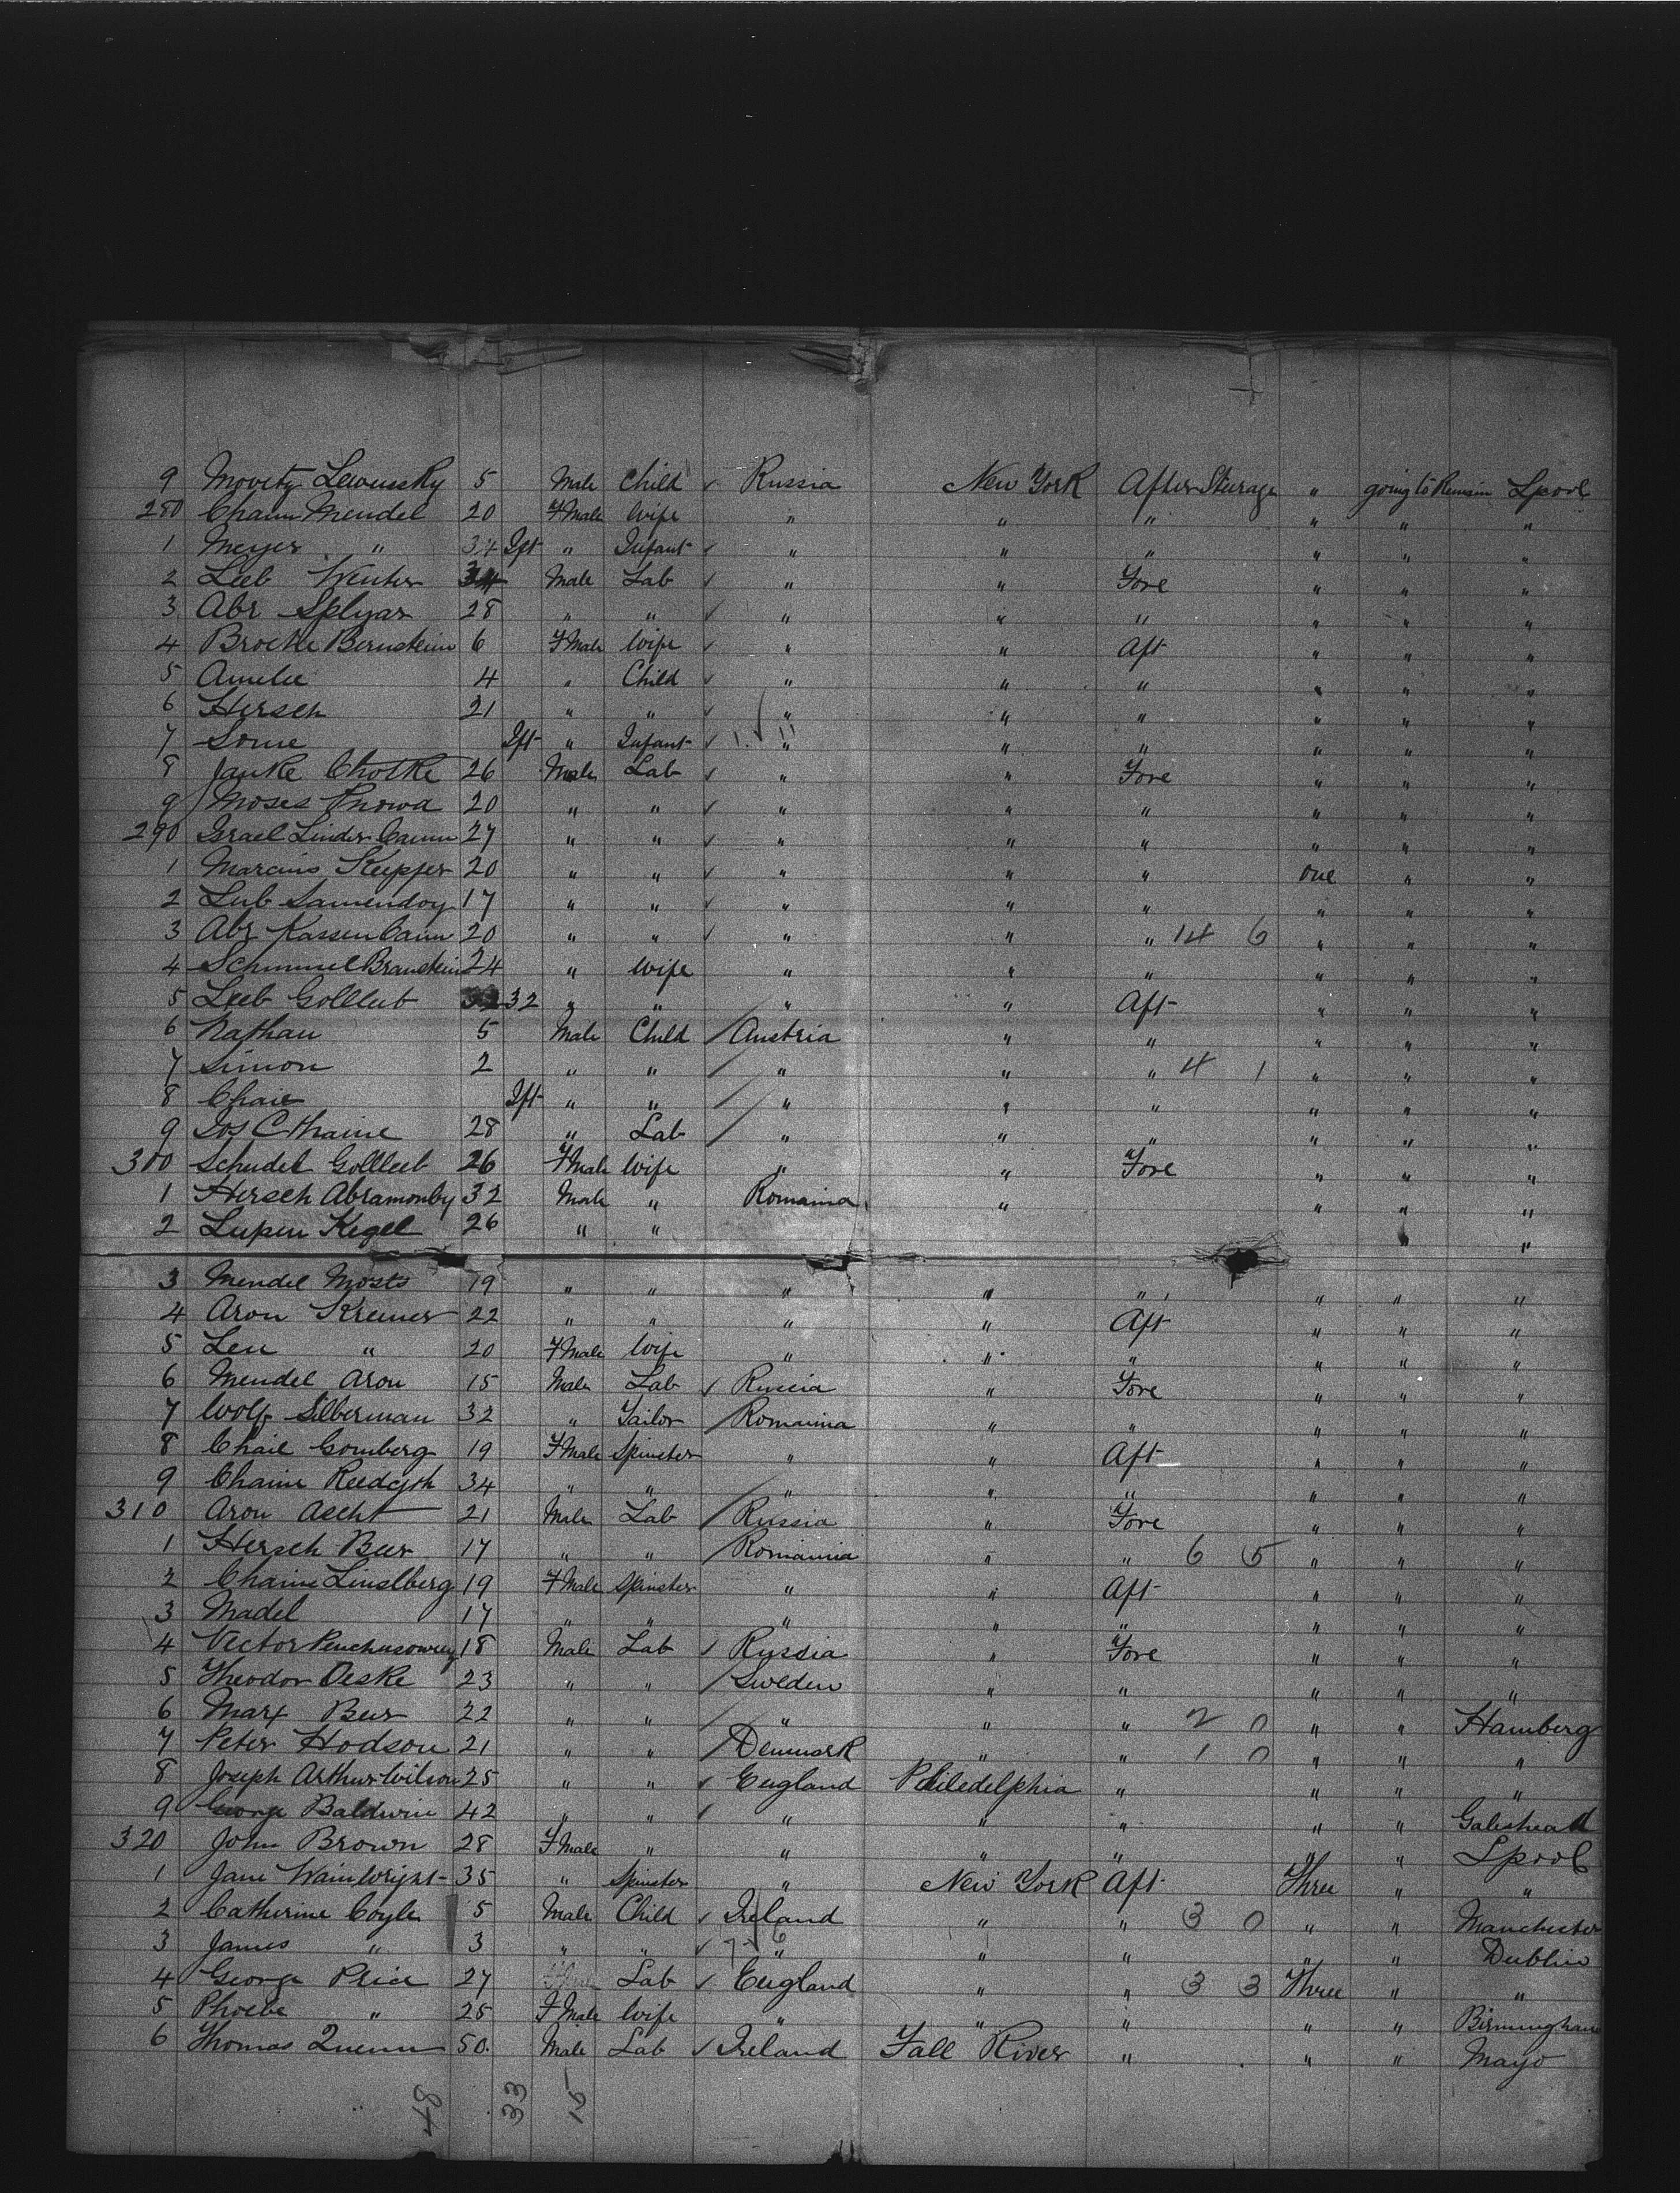 9 Movitz Lewussky 5 Male Child ✓ Russia New York After Sturage " going to Remain Lpool
280 Chaim Mendel 20 FMale Wife " " " " " "
1 Meyer " Ift " Infant ✓ " " " " " "
2 Leib Winter Male Lab ✓ " " Fore " " "
3 Abr Splyar 28 " " ✓ " " " " " "
4 Brocke Bernstein 6 FMale Wife ✓ " " Aft " " "
5 Amelie 4 " Child ✓ " " " " " "
6 Hersch 21 " " ✓ " " " " " "
7 Sorie Ift " Infant ✓ " " " " " "
8 Janke Chotke 26 Male Lab ✓ " " Fore " " "
9 Moses Pnowa 20 " " ✓ " " " " " "
290 Israel Linder Caum 27 " " ✓ " " " " " "
1 Marcius Kupfer 20 " " ✓ " " " one " "
2 Lub Samendoy 17 " " ✓ " " " " " "
3 Abr Kassen Caum 20 " " ✓ " " " 14 6 " " "
4 Schmuel Braustein 24 " Wife " " " " " "
5 Leib Gollleib 32 " " " " Aft " " "
6 Nathan 5 Male Child / Austria " " " " "
7 Simon 2 " " / " " " 4 1 " " "
8 Chaie Ift " " / " " " " " "
9 Jos Cthaine 28 " Lab / " " " " " "
300 Schudel Gollleib 26 FMale Wife " " Fore " " "
1 Hersch Abramonby 32 Male " Romania " " " "
2 Lupen Kegel 26 " " " "
3 Mendel Mosts 19 " " " " " " " "
4 Aron Kremer 22 " " " " Aft " " "
5 Len " 20 FMale Wife " " " " " "
6 Mendel Aron 15 Male Lab ✓ Russia " Fore " " "
7 Wolf Silberman 32 " Tailor / Romania " " " " "
8 Chaie Gomberg 19 FMale Spinster " " Aft " " "
9 Chaim Reedgth 34 " " / " " " " " "
310 Aron Aecht 21 Male Lab / Russia " Fore " " "
1 Hersch Ber 17 " " / Romania " " 6 5 " " "
2 Chaim Linslberg 19 FMale Spinster " " Aft " " "
3 Madel 17 " " " " " " " "
4 Victor 18 Male Lab ✓ Russia " Fore " " "
5 Theodor Oeske 23 " " / Sweden " " " " "
6 Marx Ber 22 " " / " " " 2 0 " " Hamberg
7 Peter Hodson 21 " " / Denmark " " 1 0 " " "
8 Joseph Arthur Wilson 25 " " ✓ England Philedelphia " " " "
9 George Baldwin 42 " " ✓ " " " " " Galeshead
320 John Brown 28 FMale " " " " " " Lpool
1 Jane Wainwright 35 " Spinster " New York Aft Three " "
2 Catherine Coyle 5 Male Child ✓ Ireland " " 3 0 " " Manchester
3 James " 3 " " ✓ " " " " " Dublin
4 George Price 27 Lab ✓ England " " 3 3 Three " "
5 Phoebe " 25 FMale Wife " " " " " Birmingham
6 Thomas Quenn 50 Male Lab ✓ Ireland Fall River " " " Mayo
48 33 15